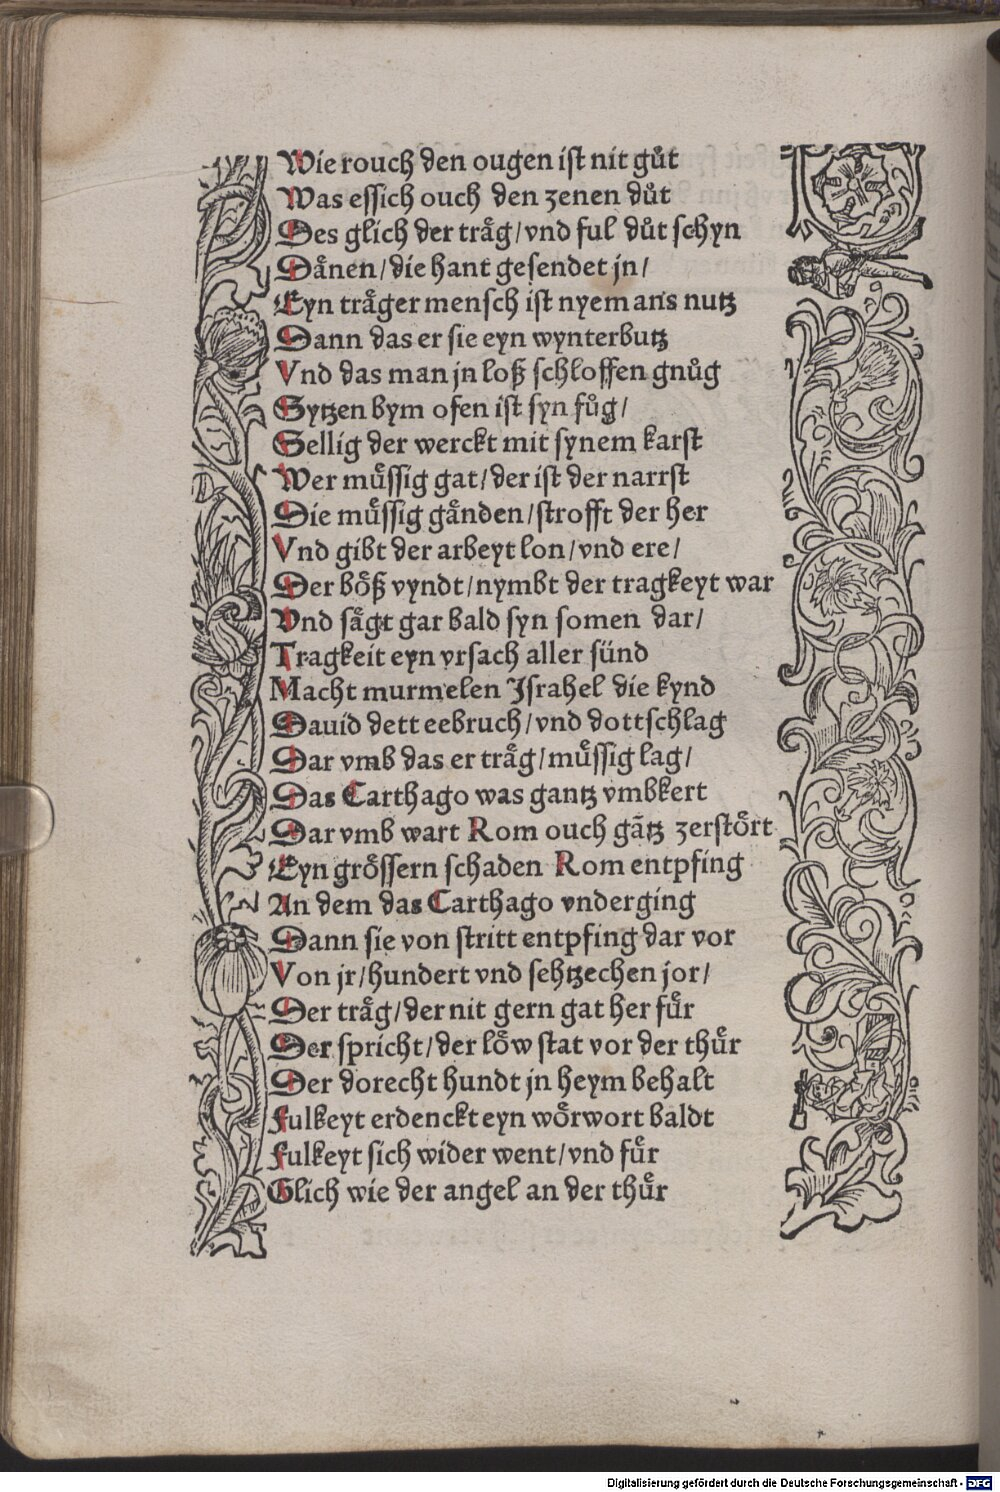 Wie rouch den ougen ist nit guͦt
Was essich ouch den zenen duͦt
Des glich der traͤg/vnd ful duͦt schyn
Daͤnen/die hant gesendet jn/
Eyn traͤger mensch ist nyemans nutz
Dann das er sie eyn wynterbutz
Vnd das man jn loß schloffen gnuͦg
Sytzen bym ofen ist syn fuͦg/
Sellig der werckt mit synem karst
Wer muͤssig gat/der ist der narrst
Die muͤssig gaͤnden/strofft der her
Vnd gibt der arbeyt lon/vnd ere/
Der boͤß vyndt/nymbt der tragkeyt war
Vnd saͤgt gar bald syn somen dar/
Tragkeit eyn vrsach aller sünd
Macht murmelen Jsrahel die kynd
Dauid dett eebruch/vnd dottschlag
Dar vmb das er traͤg/muͤssig lag/
Das Carthago was gantz vmbkert
Dar vmb wart Rom ouch gātz zerstoͤrt
Eyn groͤssern schaden Rom entpfing
An dem das Carthago vnderging
Dann sie von stritt entpfing dar vor
Von jr/hundert vnd sehtzechen jor/
Der traͤg/der nit gern gat her fuͤr
Der spricht/der loͤw stat vor der thuͤr
Der dorecht hundt jn heym behalt
Fulkeyt erdenckt eyn woͤrwort baldt
Fulkeyt sich wider went/vnd fuͤr
Glich wie der angel an der thuͤr
Digitalisierung gefördert durch die Deutsche Forschungsgemeinschaft - DFG